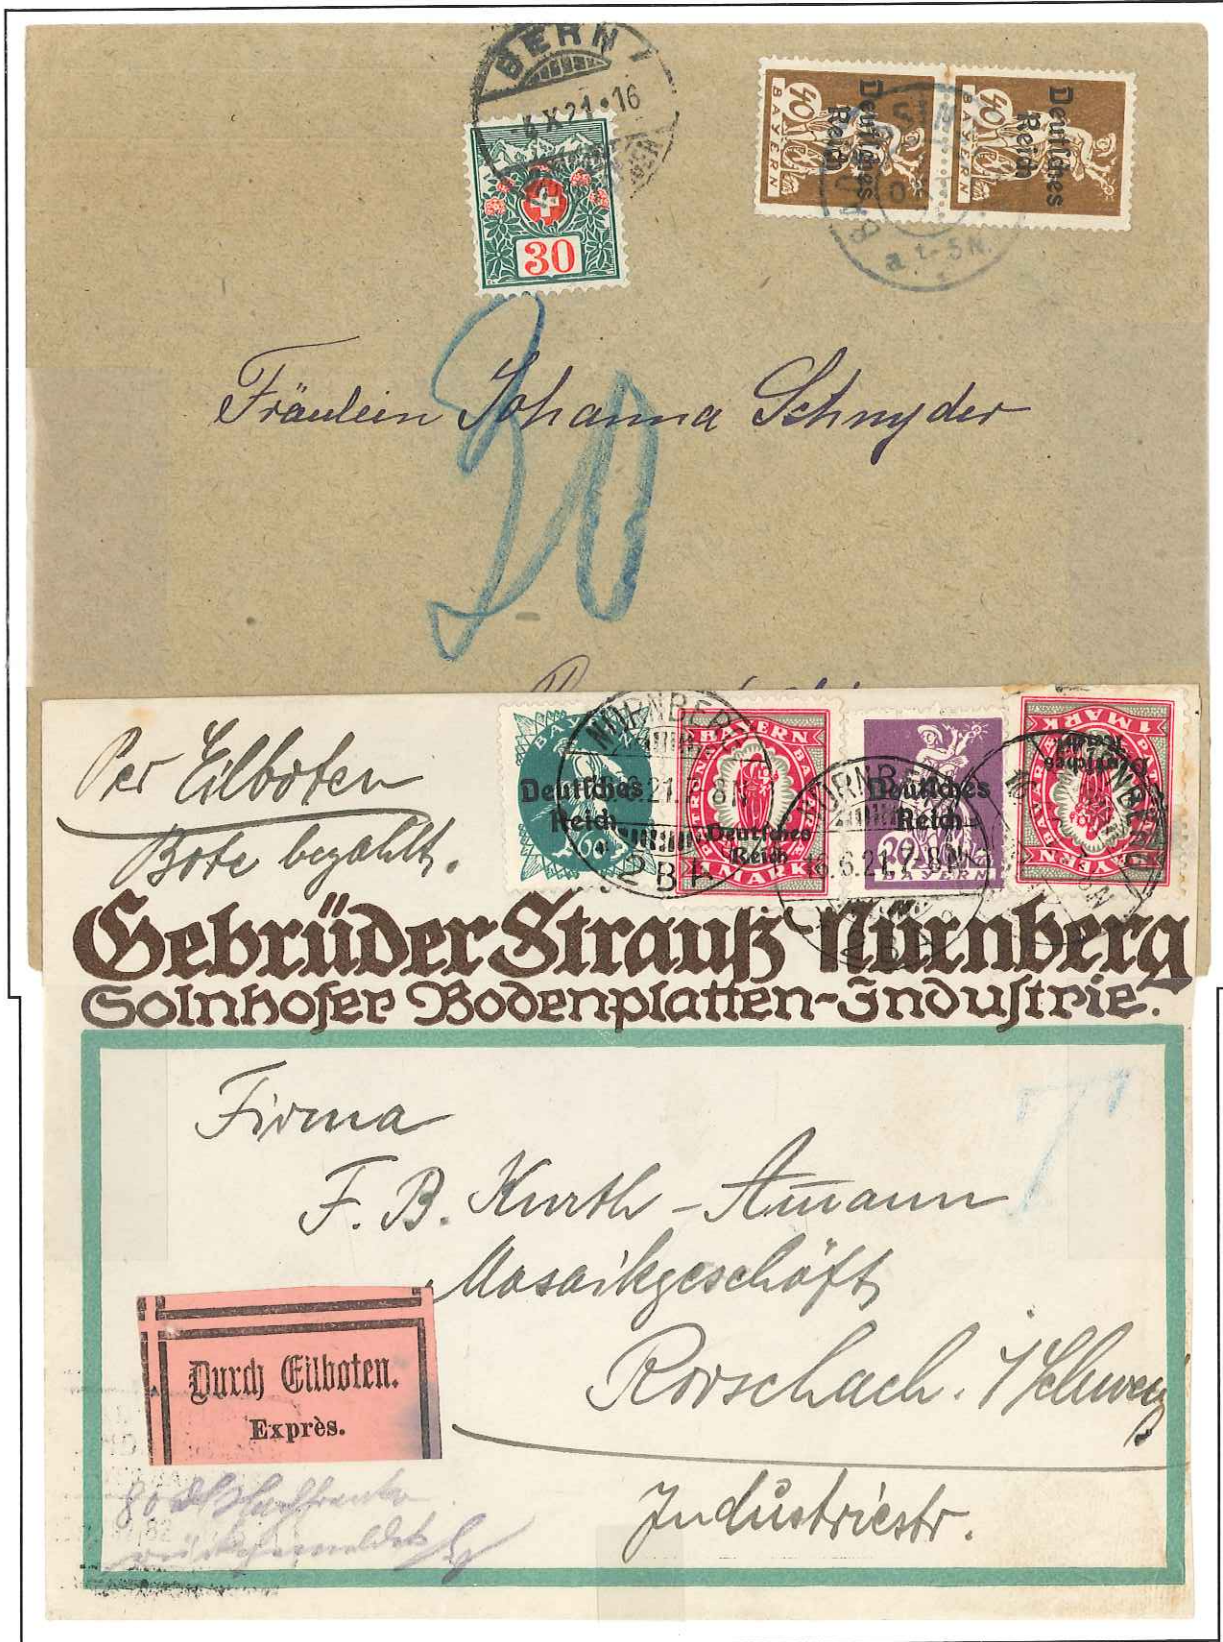 BERN 1
-6.X.21•16
30
Deutsches
Reich
40
BAYERN
Deutsches
Reich
40
BAYERN
a 4-5N.
Fräulein Johanna Schnyder
30
Per Eilboten
Bote bezahlt.
NÜRNBERG
Deutsches
Reich
60
BAYERN
Deutsches
Reich
1 MARK
NÜRNBERG
16.6.21.7-8N
Deutsches
Reich
20
BAYERN
1 MARK
Deutsches
Reich
BAYERN
NÜRNBERG
Gebrüder Strauß-Nürnberg
Solnhofer Bodenplatten-Industrie.
T
Firma
F. B. Kurth-Amann
Mosaikgeschäft
Rorschach. /Schweiz
Industriestr.
Durch Eilboten.
Exprès.
80